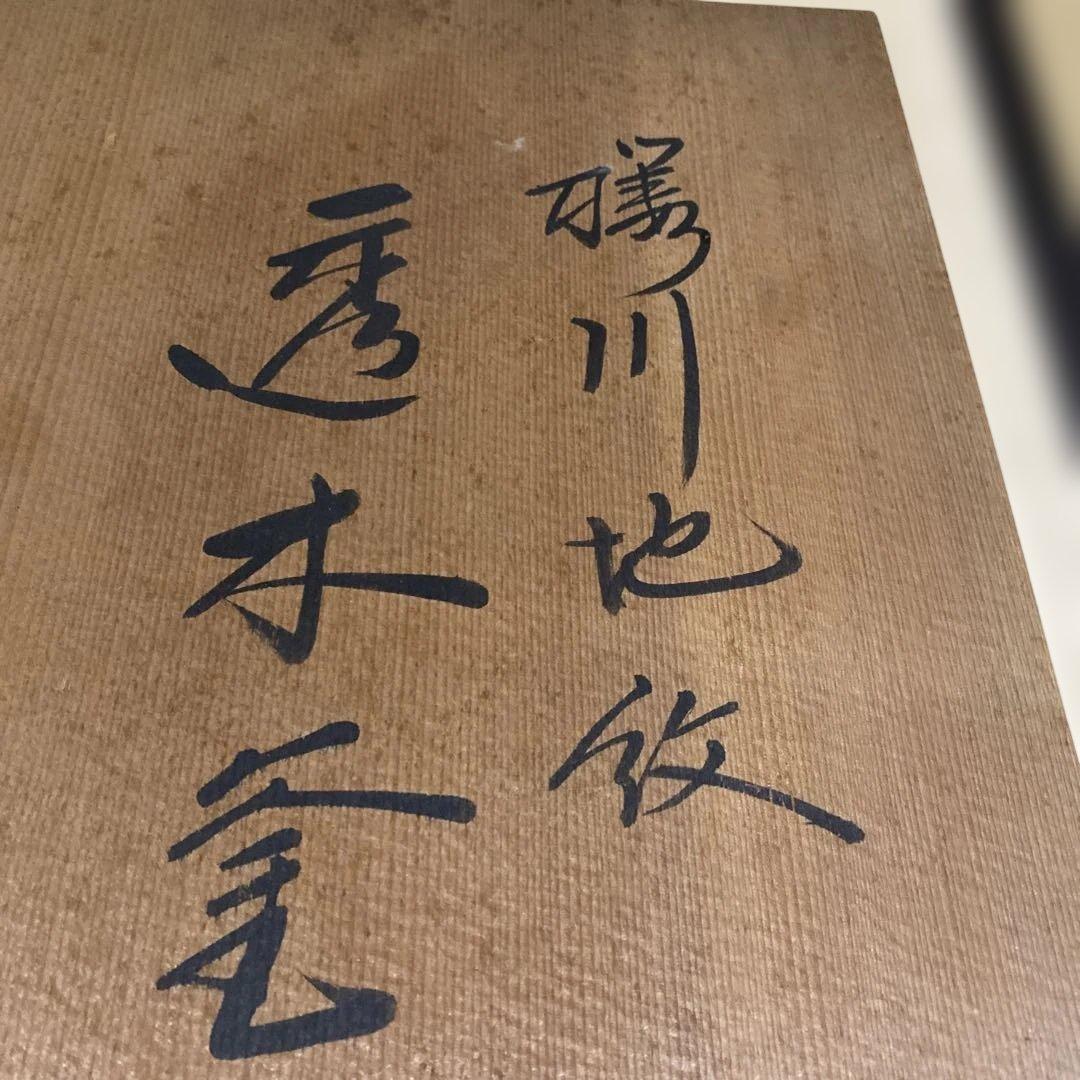 桜川地紋
透木釜